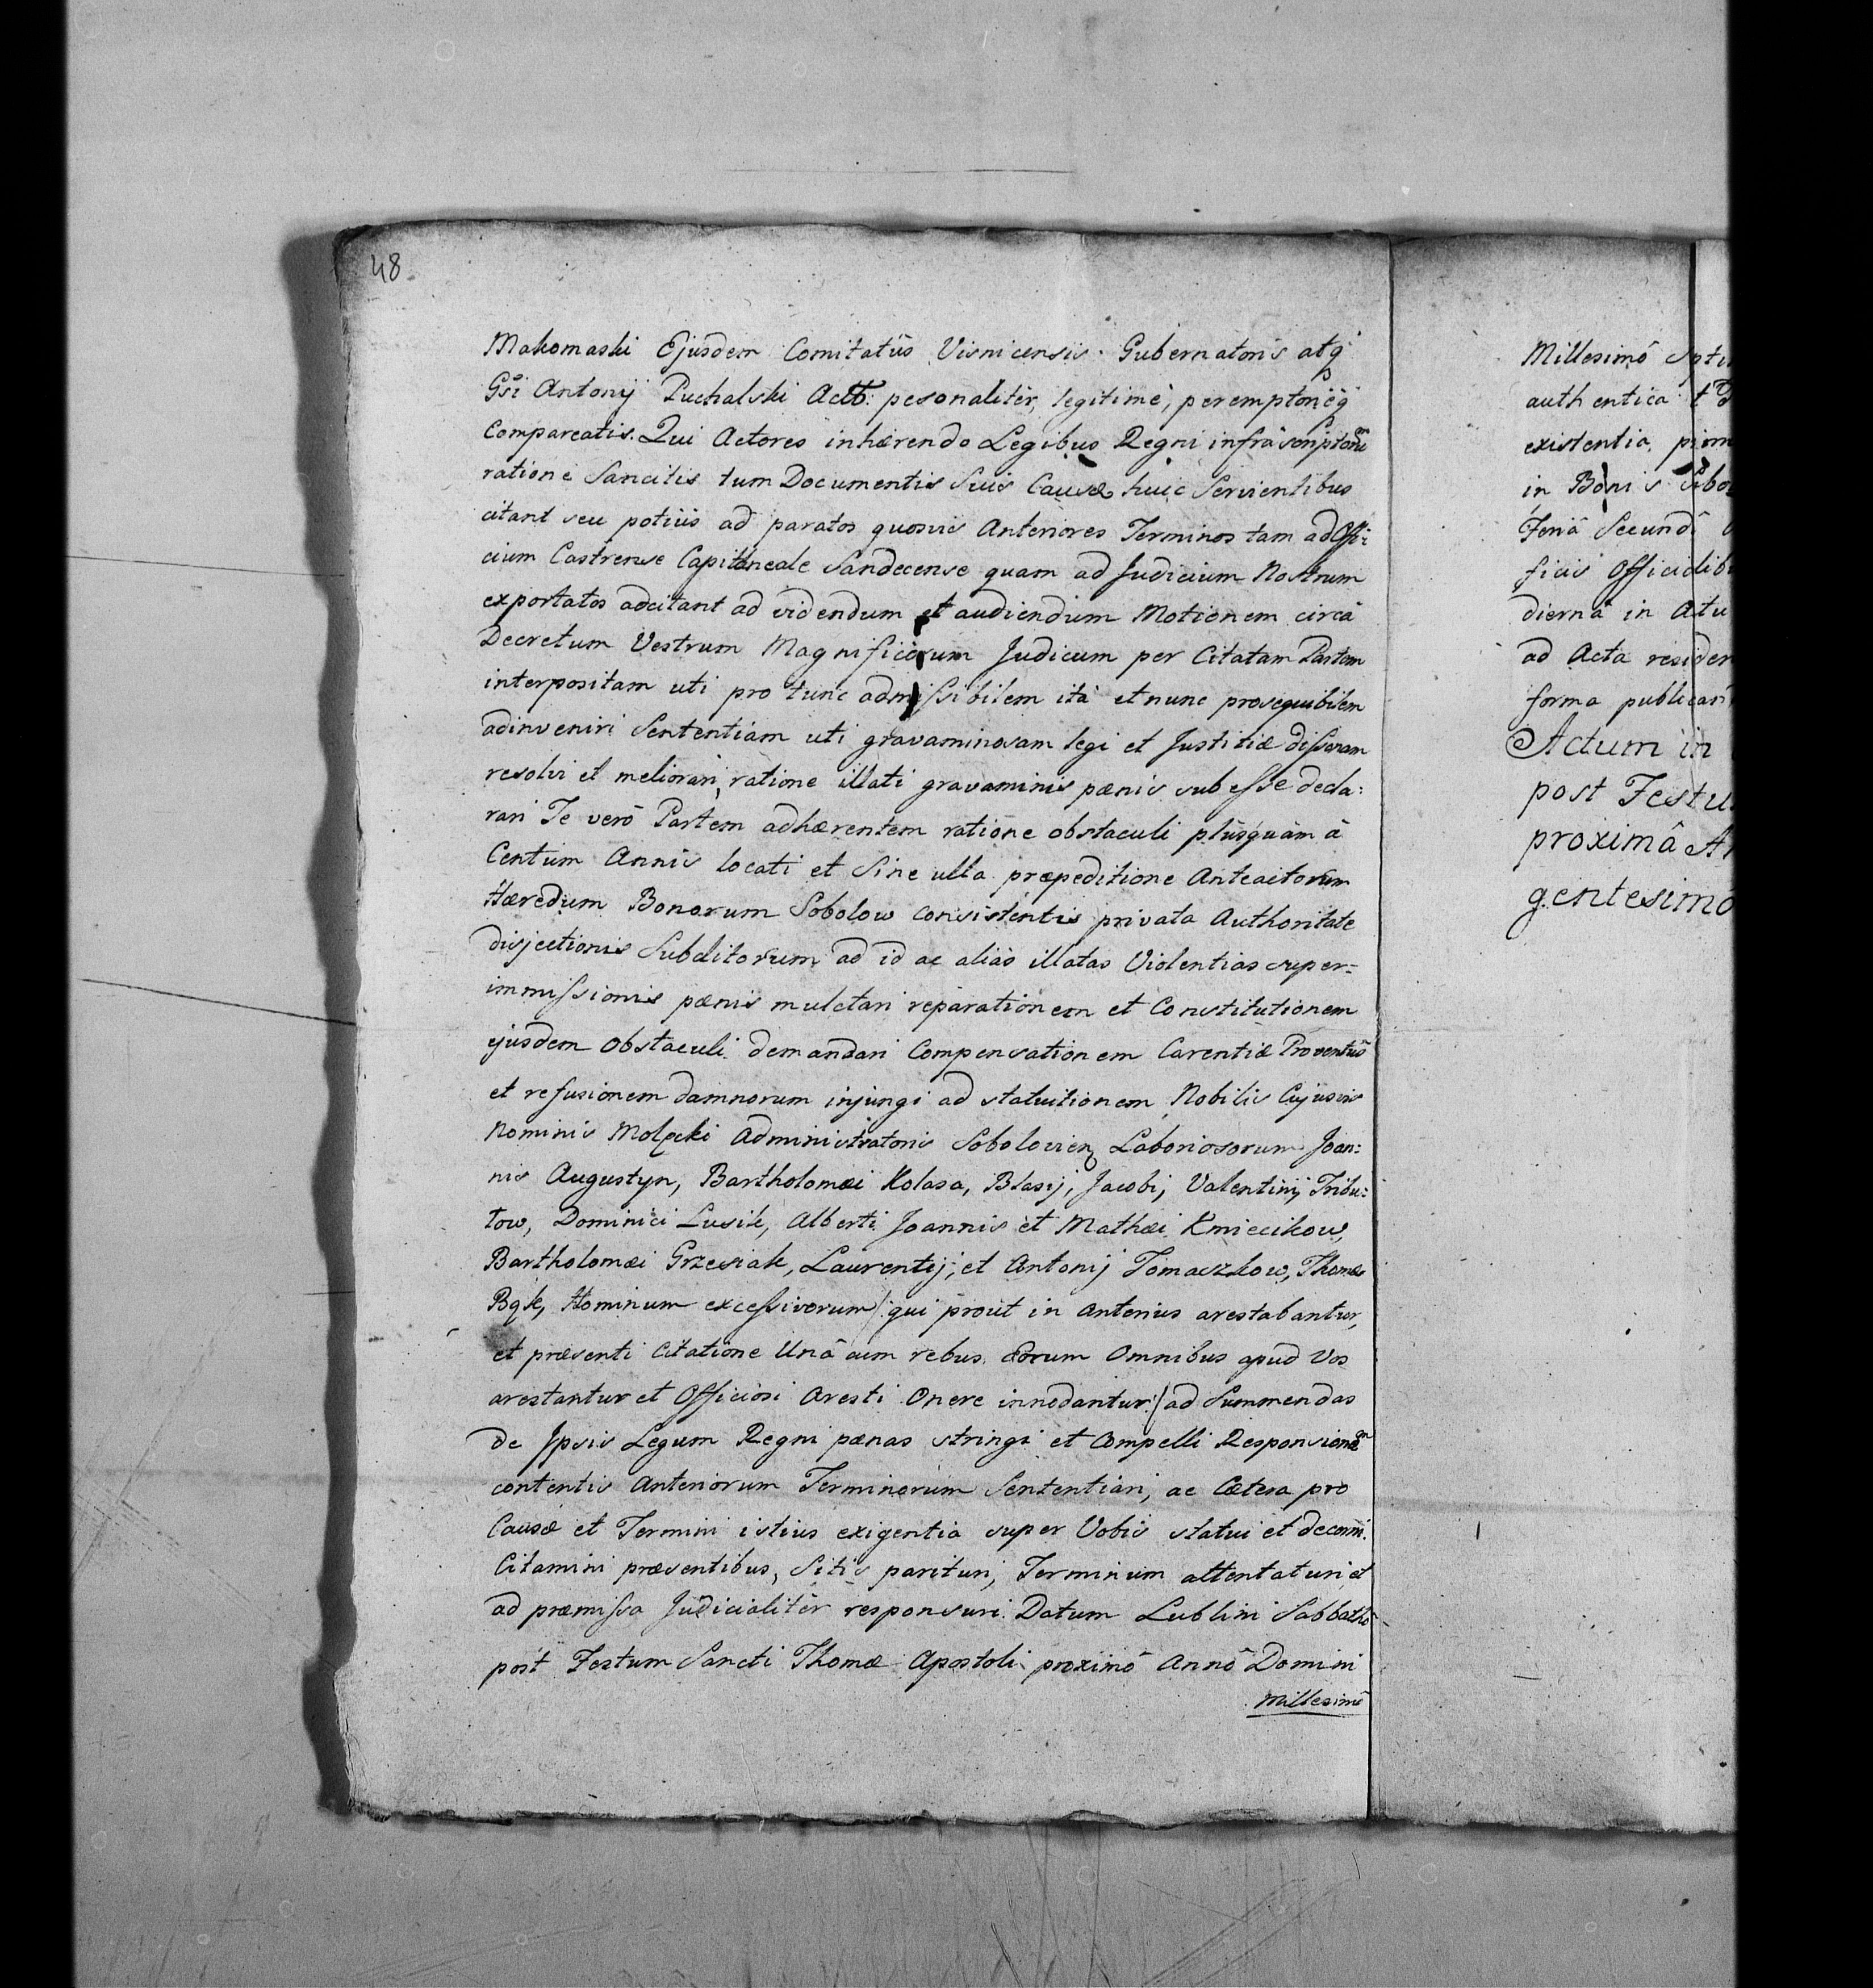 48
Makomaski Ejusdem Comitatûs Visnicensis Gubernatoris atq
Gsi Antonij Puchalski Actt: pesonalitèr, legitimè, peremptorièq
Compareatis. Qui Actores inhærendo Legibus Regni infrascriptorũ
ratione Sancitis tum Documentis Suis Causæ huic Servientibus
citant seu potiùs ad paratos quosvis Anteriores Terminos tam ad Offi:
cium Castrense Capitaneale Sandecense quam ad Judicium Nostrum
exportatos adcitant ad videndum et audiendum Motionem circà
Decretum Vestrum Magnificorum Judicum per Citatam Partem
interpositam uti pro tunc admissibilem ità et nunc prosequibilem
adinveniri Sententiam uti gravaminosam legi et Justitiæ dissonam
resolvi et meliorari, ratione illati gravaminis pænis subesse decla:
rari Te verò Partem adhærentem ratione obstaculi plusquàm à
Centum Annis locati et Sine ulla præpeditione Anteacitorum
Hæredum Bonorum Sobolow consistentis privata Authoritate
disjectionis Subditorum ad id ac aliàs illatas Violentias super=
immissionis pænis mulctari reparationem et Constitutionem
ejusdem Obstaculi demandari Compensationem Carentiæ Proventûs
et refusionem damnorum injungi ad statuitionem Nobilis Cujusvis
Nominis Molęcki Administratoris Sobolovien Laboriosorum Joan:
nis Augustyn, Bartholomæi Kolasa, Blasij, Jacobi, Valentinij Tribu:
tow, Dominici Lusik, Alberti Joannis et Mathæi Kmiecikow,
Bartholomæi Grzesiak, Laurentij, et Antonij Tomaczkow, Thomæ
Bąk, Hominum excessivorum /: qui prout in anterius arestabantur,
et præsenti Citatione Unâ cum rebus Eorum Omnibus apud Vos
arestantur et Officiosi Aresti Onere innodantur :/ ad Summendas
de Ipsis Legum Regni pænas stringi et Compelli Responsione
contentis Anteriorum Terminorum Sententiari, ac Cætera pro
Causæ et Termini istius exigentia super Vobis statui et decerni.
Citamini præsentibus, Sitis parituri, Terminum attentaturi, et
ad præmissa Judicialitèr responsuri. Datum Lublini Sabbathô
post Festum Sancti Thomæ Apostoli proximô Annô Domini
Millesimô
Millesimô Septi
authentica
existentia
in Bonis Sobo
Feriâ Secundâ
ficis Officialib
diernâ in Actu
ad Acta residen
forma publicari
Actum in
post Festu
proximâ A
gentesimô